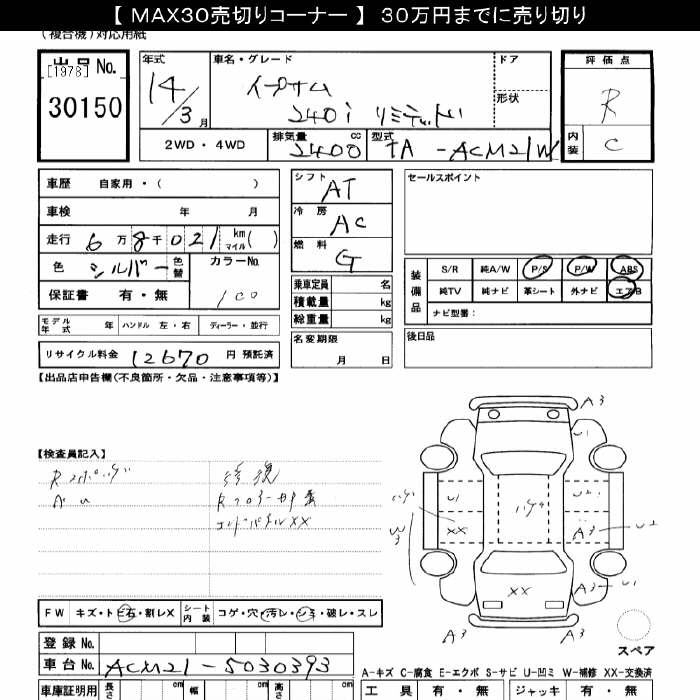 【 MAX30売切りコーナー 】 30万円までに売り切り
(複合機)対応用紙
出品No.
[1978]
30150
年式
14/3月
車名・グレード
イプサム
240i リミテッド
ドア
形状
評価点
R
内装
C
2WD・4WD
排気量 cc
2400
型式
TA-ACM21W
車歴 自家用・( )
車検 年 月
走行 6万8千021 km マイル( )
色 シルバー 色替
カラーNo.
1C0
保証書 有・無
シフト AT
冷房 AC
燃料 G
乗車定員 名
積載量 kg
総重量 kg
名変期限
月 日
セールスポイント
装備品
S/R 純A/W P/S P/W ABS
純TV 純ナビ 革シート 外ナビ エアB
ナビ型番：
後日品
モデル年式 年 ハンドル 左・右 ディーラー・並行
リサイクル料金 12670 円 預託済
【出品店申告欄(不良箇所・欠品・注意事項等)】
【検査員記入】
修復
Rフロアー
エンドパネルXX
A3
U1
U1
U2
ハゲ
ハゲ
W3
XX
A3
U2
XX
A3
U1
A3
A3
スペア
FW キズ・トビ石・割レX シート内装 コゲ・穴・汚レ・シミ・破レ・スレ
登録No.
車台No. ACM21-5030393
A-キズ C-腐食 E-エクボ S-サビ U-凹ミ W-補修 XX-交換済
車庫証明用 長さ cm 幅 cm 高さ cm
工具 有・無 ジャッキ 有・無